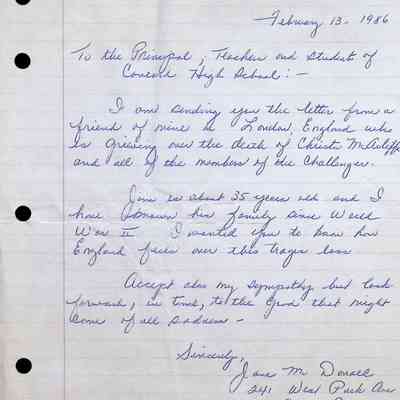 February 13, 1986
To the Principal, Teachers and Students of
Concord High School: -
I am sending you the letter from a
friend of mine in London, England who
is grieving over the death of Christa McAuliffe
and all of the members of the Challenger.
is about 35 years old and I
have known her family since World
War II I wanted you to know how
England feels over this tragic loss
Accept also my sympathy but look
forward, in time, to the good that might
come of all sadness -
Sincerely,
Jane M
241 West Park Ave